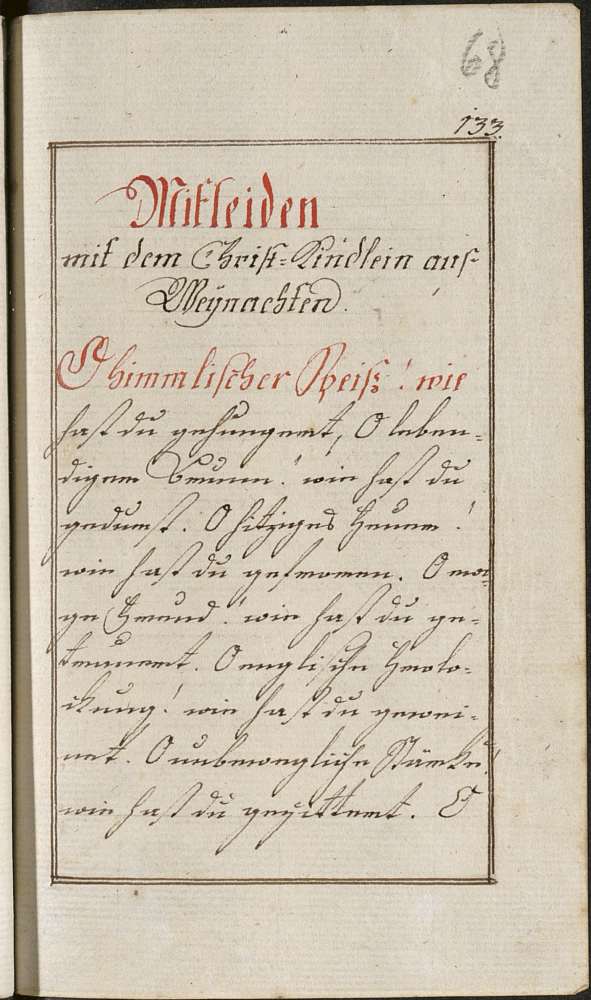 68
133.
Mitleiden
mit dem Christ=Kindlein auf
Weÿnachten.
O himmlischer Speiß! wie
hast du gehungert, O leben=
diger Brunn! wie hast du
gedurst. O hitziges Feuer!
wie hast du gefroren. O ewi=
ge Freud! wie hast du ge=
trauert. O englische Frolo=
ckung! wie hast du gewei=
net. O unbewegliche Stärke!
wie hast du gezittert. O